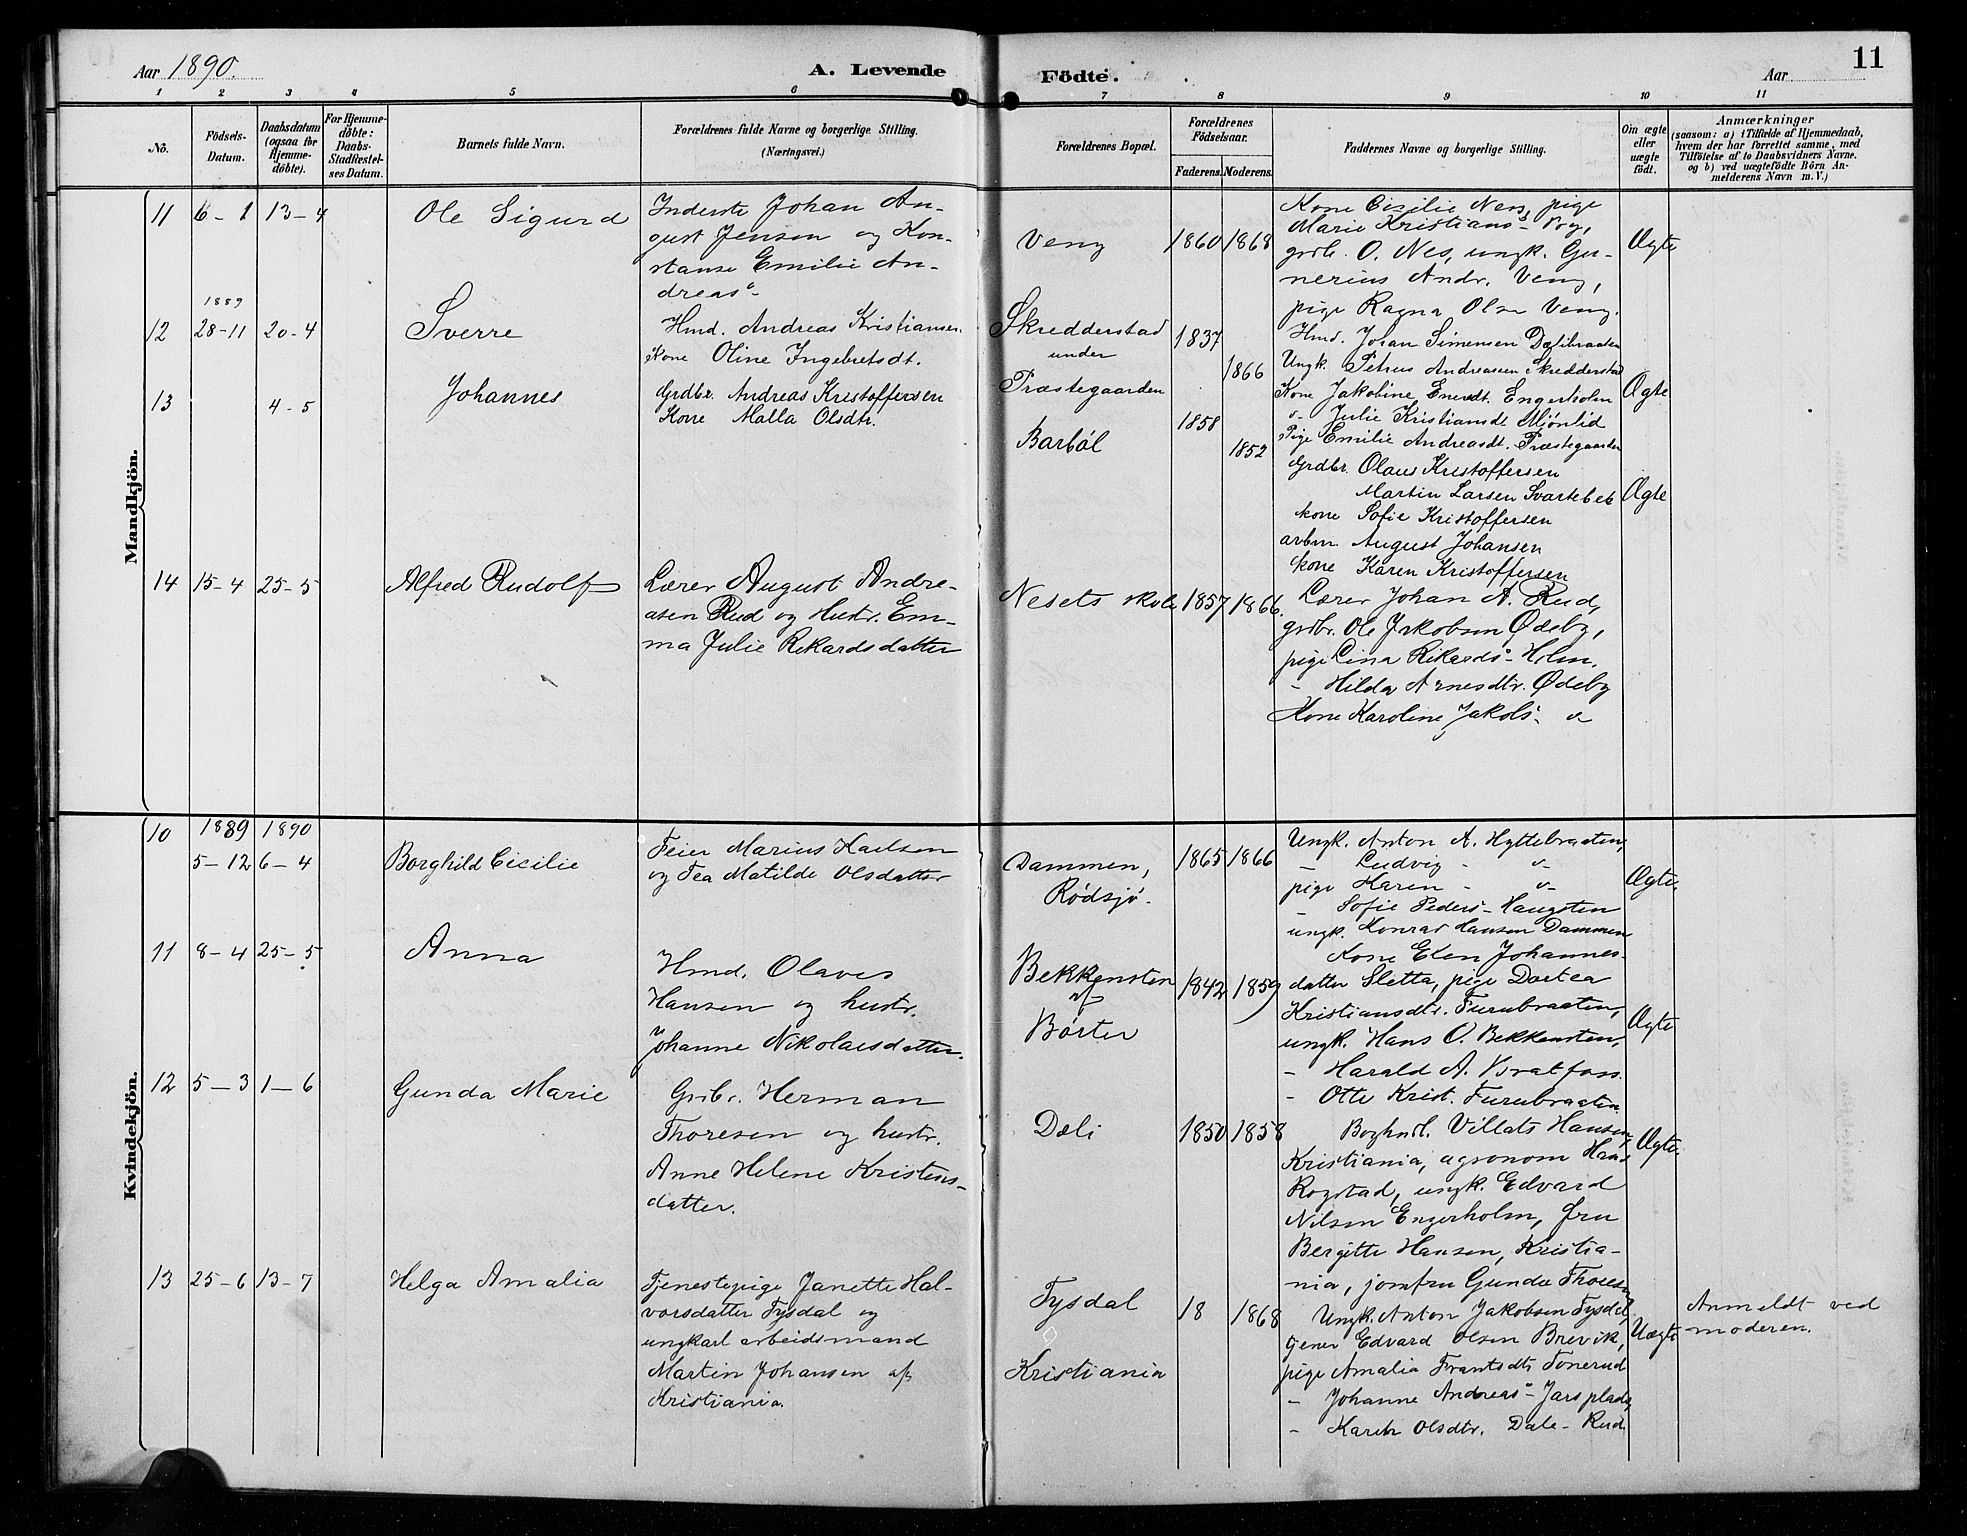 Aar 1890.
A. Levende
Födte.
Aar
11
1 2 3 4 5 6 7 8 9 10 11
No.
Födsels-Datum.
Daabsdatum (ogsaa for Hjemme-döbte).
For Hjemme-döbte: Daabs-Stadfæstel-ses Datum.
Barnets fulde Navn.
Forældrenes fulde Navne og borgerlige Stilling.
(Næringsvei.)
Forældrenes Bopæl.
Forældrenes Födselsaar.
Faderens. Moderens.
Faddernes Navne og borgerlige Stilling.
Om ægte eller uægte födt.
Anmærkninger
(saasom: a) i Tilfælde af Hjemmedaab,
hvem der har forrettet samme, med
Tilföielse af to Daabsvidners Navne.
og b) ved uægtefödte Börn An-
melderens Navn m. V.)
Mandkjön.
11 6-1 13-4 Ole Sigurd
Inderste Johan Au-
gust Jensen og Kon-
stanse Emilie An-
dreasd-
Veng 1860 1868
Kone Cesilie Nes, pige
Marie Kristians-
grdb. O. Nes, ungk. Gu-
nerius Andr. Veng,
pige Ragna Olsen Veng.
Ægte
12 1889 28-11 20-4 Sverre
Hmd. Andreas Kristiansen
Kone Oline Ingebretsdt.
Skredderstad
under
Præstegaarden
1837 1866
Hmd. Johan Simensen Dælibraaten
Ungk. Petrus Andreasen Skredderstad
Kone Jakobine Enersdt. Engerholm
" Julie Kristiansdt Mjönlid
Pige Emilie Andreasdt. Præstegaarden
Ægte
13 4-5 Johannes
Grdbr. Andreas Kristoffersen
Kone Malla Olsdtr.
Barböl
1858 1852
Grdbr. Olaus Kristoffersen
Martin Larsen Svartebek
kone Sofie Kristoffersen
arbm. August Johansen
kone Karen Kristoffersen
Ægte
14 15-4 25-5 Alfred Rudolf
Lærer August Andre-
asen Rud og Hustr. Em-
ma Julie Rikardsdatter
Nesets skole 1857 1866.
Lærer Johan A. Rud,
grdbr. Ole Jakobsen Ødeby,
pige Lina Rikards- Holm.
- Hilda Arnesdtr. Ødeby
Kone Karoline Jakobs- "
Kvindekjön.
10 1889 5-12 1890 6-4 Borghild Cicilie
Feier Marius Karlsen
og Tea Matilde Olsdatter
Dammen,
Rødsjø.
1865 1866
Ungk. Anton A. Hyttebraaten,
- Ludvig - "
pige Karen - "
- Sofie Peders- Haugsten
ungk. Konrad Hansen Dammen
Ægte.
11 8-4 25-5 Anna
Hmd. Olaves
Hansen og hustr.
Johanne Nikolaisdatter.
Bekkensten
af
Børter
1842 1859
Kone Elen Johannes-
datter Sletta, pige Dortea
Kristiansdtr. Furubraaten,
ungk. Hans O. Bekkensten,
- Harald A. Bratfoss.
- Otto Krist. Furubraaten
Ægte
12 5-3 1-6 Gunda Marie
Grdbr. Herman
Thoresen og hustr.
Anne Helene Kristens-
datter.
Dæli 1850 1858
Boghndl. Villats Hansen,
Kristiania, agronom Hans
Rogstad, ungk. Edvard
Nilsen Engerholm, fru
Bergitte Hansen, Kristia-
nia, jomfru Gunda Thoresen
Ægte.
13 25-6 13-7 Helga Amalia
Tjenestepige Janette Hal-
vorsdatter Tysdal og
ungkarl arbeidsmand
Martin Johansen af
Kristiania.
Tysdal
Kristiania
18 1868
Ungk. Anton Jakobsen Tysdal,
tjener Edvard Olsen Brevik,
pige Amalia Frantsdt. Tonerud
- Johanne Andreas- Jarsplads,
- Karen Olsdtr. Dale-Rud.
Uægte
Anmeldt ved
moderen.